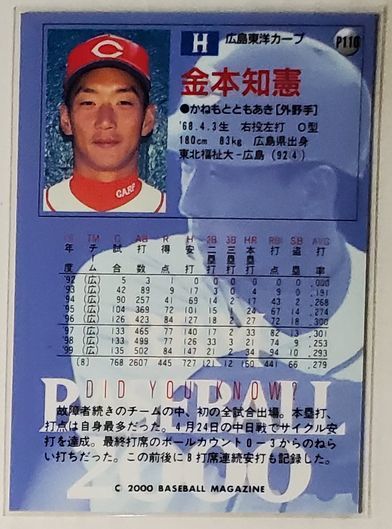 C
CARP
H 広島東洋カープ P110
金本知憲
●かねもとともあき[外野手]
'68.4.3生 右投左打 O型
180cm 83kg 広島県出身
東北福祉大-広島(92④)
YR TM G AB R H 2B 3B HR RBI SB AVG
年度 チーム 試合 打数 得点 安打 二塁打 三塁打 本塁打 打点 盗塁 打率
'92 (広) 5 3 1 0 0 0 0 0 0 .000
'93 (広) 42 89 9 17 3 0 4 9 0 .191
'94 (広) 90 257 41 69 14 2 17 43 2 .268
'95 (広) 104 369 67 14 274
'96 (広) 126 423 84 127 18 2 27 72 18 .300
'97 (広) 133 465 77 140 17 2 33 82 3 .301
'98 (広) 133 499 77 126 33 2 74 9 .253
'99 (広) 135 502 84 147 21 2 34 94 10 .293
(8) 768 2607 445 727 121 12 160 441 66 .279
DID YOU KNOW?
BASEBALL
2000
故障者続きのチームの中、初の全試合出場。本塁打、
打点は自身最多だった。4月24日の中日戦でサイクル安
打を達成。最終打席のボールカウント0-3からのねら
い打ちだった。この前後に8打席連続安打も記録した。
C 2000 BASEBALL MAGAZINE